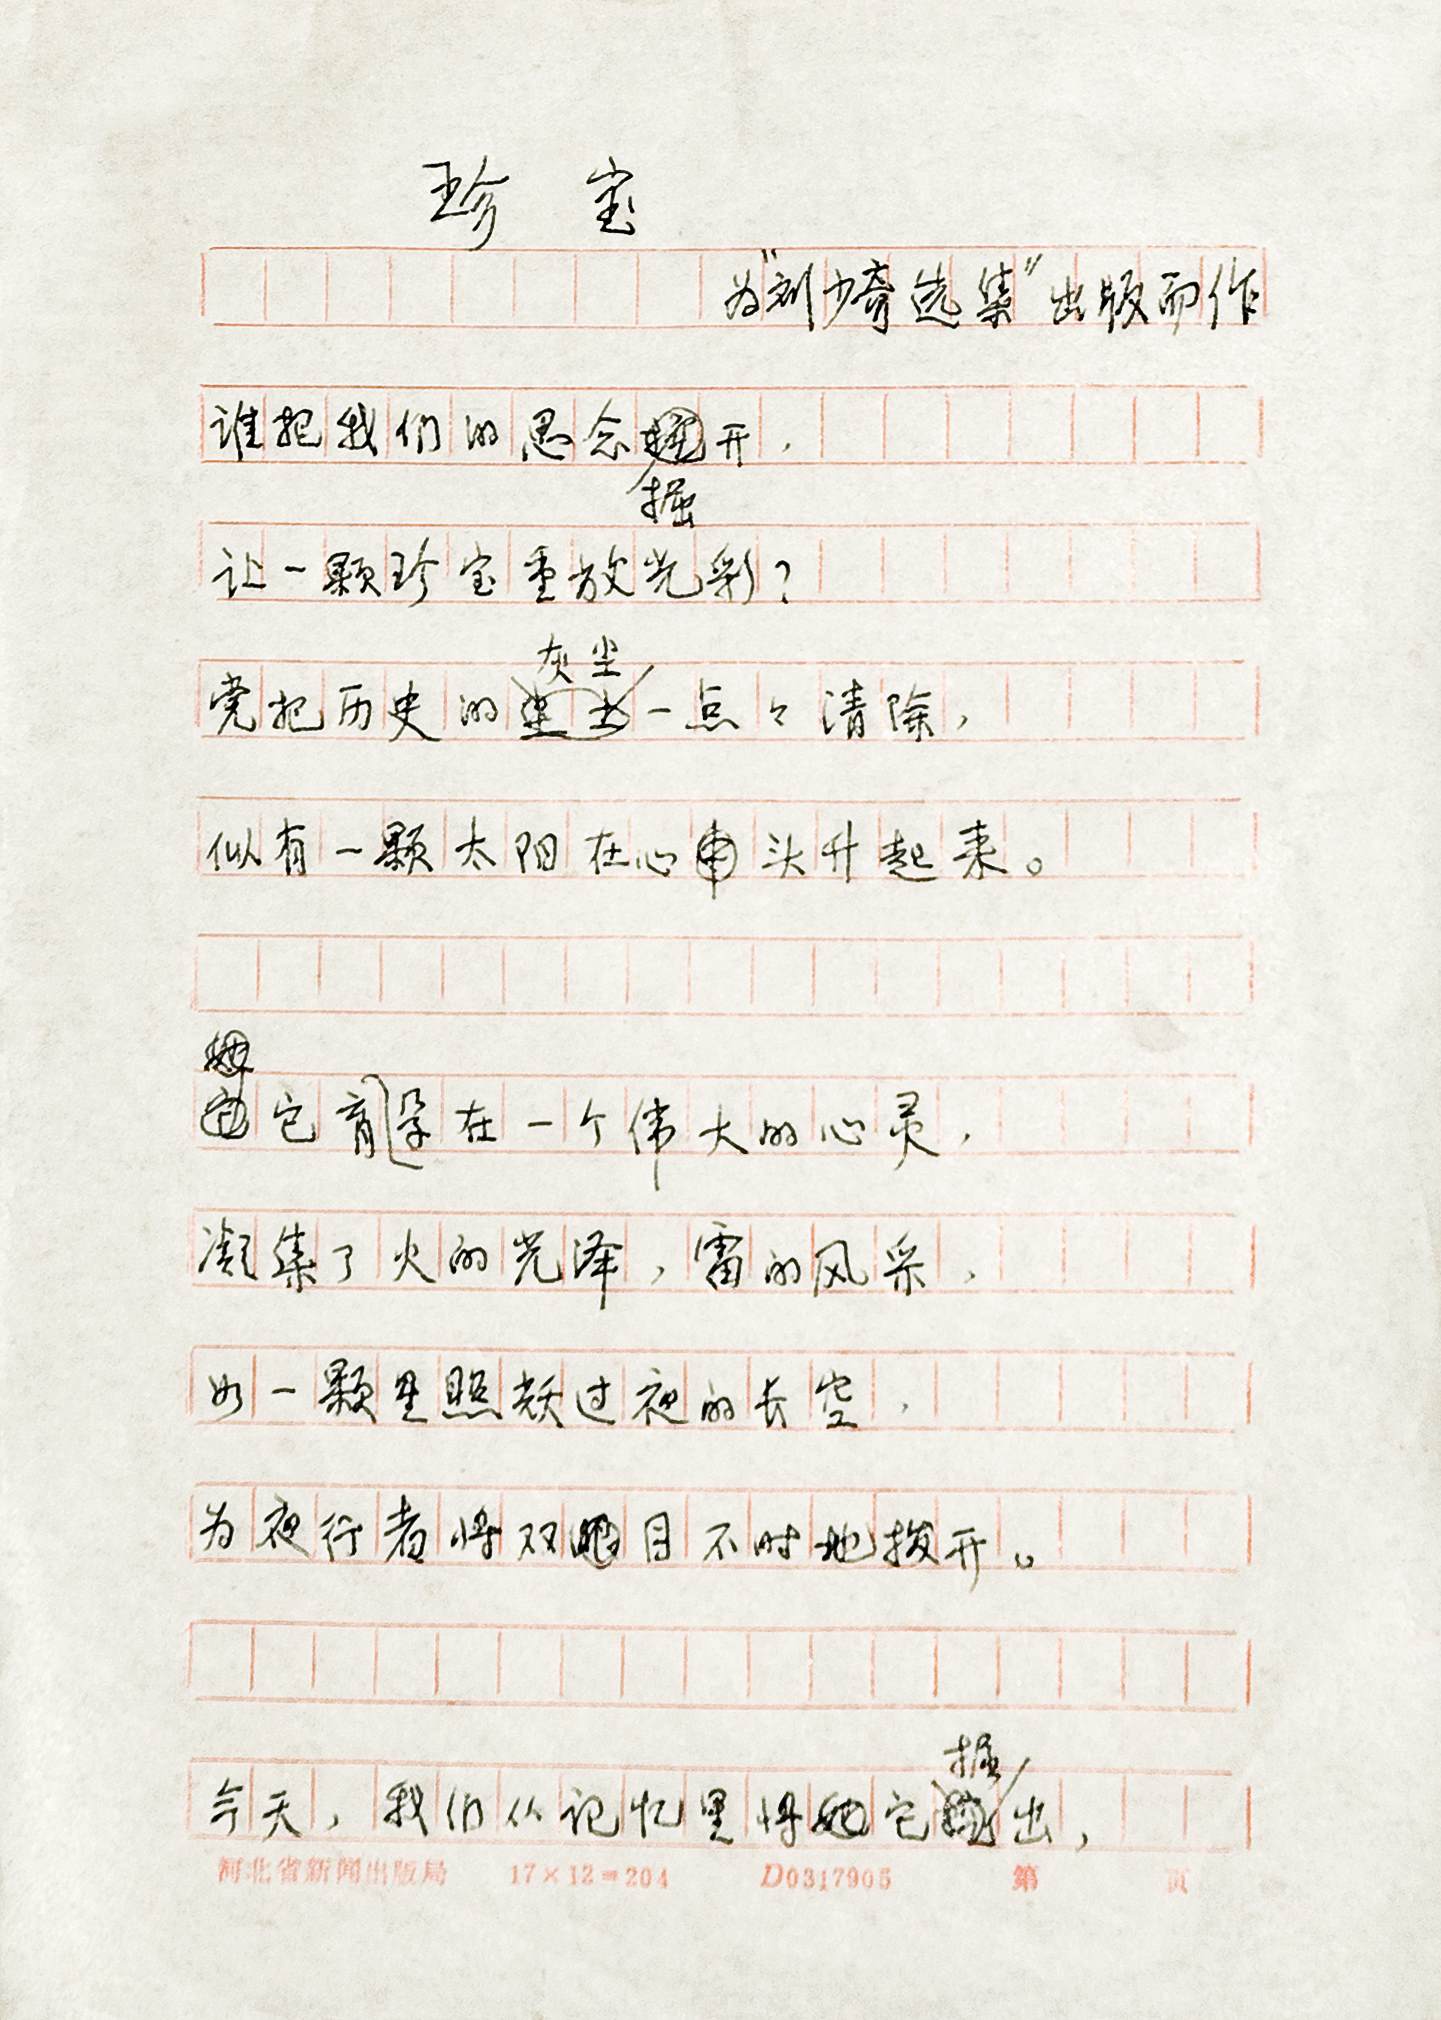 珍宝
为"刘少奇选集"出版而作
谁把我们的思念掘开，
让一颗珍宝重放光彩？
党把历史的灰尘一点々清除，
似有一颗太阳在心头升起来。
它孕育在一个伟大的心灵，
凝集了火的光泽，雷的风采，
如一颗星照耀过夜的长空，
为夜行者将双目不时地拨开。
今天，我们从记忆里将它掘出，
河北省新闻出版局 17×12=204 D0317905 第 页